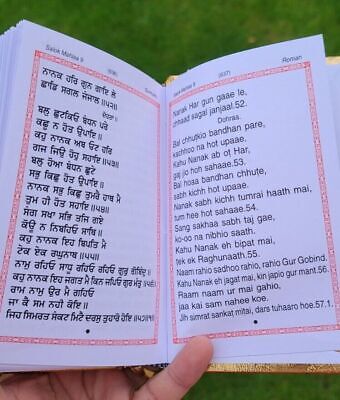 Salok Mahlaa 9
(936)
ਨਾਨਕ ਹਰਿ ਗੁਨ ਗਾਇ ਲੇ
ਛਾਡਿ ਸਗਲ ਜੰਜਾਲ ॥੫੨॥
ਦੋਹਰਾ ॥
ਬਲੁ ਛੁਟਕਿਓ ਬੰਧਨ ਪਰੇ
ਕਛੂ ਨ ਹੋਤ ਉਪਾਇ ॥
ਕਹੁ ਨਾਨਕ ਅਬ ਓਟ ਹਰਿ
ਗਜ ਜਿਉ ਹੋਹੁ ਸਹਾਇ ॥੫੩॥
ਬਲੁ ਹੋਆ ਬੰਧਨ ਛੁਟੇ
ਸਭੁ ਕਿਛੁ ਹੋਤ ਉਪਾਇ ॥
ਨਾਨਕ ਸਭੁ ਕਿਛੁ ਤੁਮਰੈ ਹਾਥ ਮੈ
ਤੁਮ ਹੀ ਹੋਤ ਸਹਾਇ ॥੫੪॥
ਸੰਗ ਸਖਾ ਸਭਿ ਤਜਿ ਗਏ
ਕੋਊ ਨ ਨਿਬਹਿਓ ਸਾਥਿ ॥
ਕਹੁ ਨਾਨਕ ਇਹ ਬਿਪਤਿ ਮੈ
ਟੇਕ ਏਕ ਰਘੁਨਾਥ ॥੫੫॥
ਨਾਮੁ ਰਹਿਓ ਸਾਧੂ ਰਹਿਓ ਰਹਿਓ ਗੁਰੁ ਗੋਬਿੰਦੁ ॥
ਕਹੁ ਨਾਨਕ ਇਹ ਜਗਤ ਮੈ ਕਿਨ ਜਪਿਓ ਗੁਰ ਮੰਤੁ ॥੫੬॥
ਰਾਮ ਨਾਮੁ ਉਰ ਮੈ ਗਹਿਓ
ਜਾ ਕੈ ਸਮ ਨਹੀ ਕੋਇ ॥
ਜਿਹ ਸਿਮਰਤ ਸੰਕਟ ਮਿਟੈ ਦਰਸੁ ਤੁਹਾਰੋ ਹੋਇ ॥੫੭॥੧॥
Salok Mahlaa 9
(937)
Roman
Nanak Har gun gaae le,
chhaad sagal janjaal.52.
Dohraa.
Bal chhutkio bandhan pare,
kachhoo na hot upaae.
Kahu Nanak ab ot Har,
gaj jio hoh sahaae.53.
Bal hoaa bandhan chhute,
sabh kichh hot upaae.
Nanak sabh kichh tumrai haath mai,
tum hee hot sahaae.54.
Sang sakhaa sabh taj gae,
ko-oo na nibhio saath.
Kahu Nanak eh bipat mai,
tek ek Raghunaath.55.
Naam rahio sadhoo rahio, rahio Gur Gobind.
Kahu Nanak eh jagat mai, kin japio gur mant.56.
Raam naam ur mai gahio,
jaa kai sam nahee koe.
Jih simrat sankat mitai, dars tuhaaro hoe.57.1.